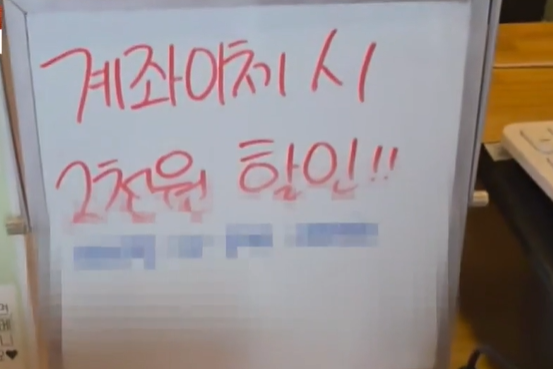 계좌이체 시
2천원 할인!!